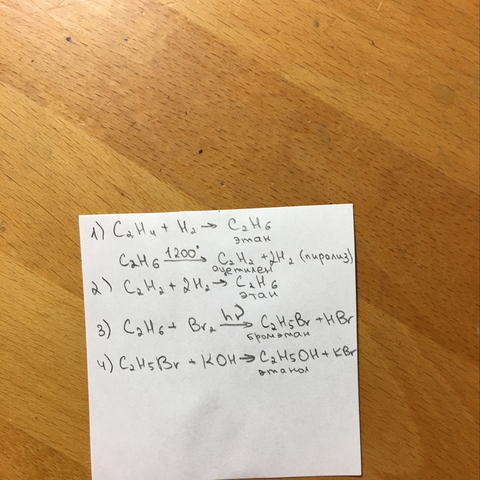 1) C₂H₄ + H₂ → C₂H₆
этан
C₂H₆ 1200° → C₂H₂ + 2H₂ (пиролиз)
ацетилен
2) C₂H₂ + 2H₂ → C₂H₆
этан
3) C₂H₆ + Br₂ hν → C₂H₅Br + HBr
бромэтан
4) C₂H₅Br + KOH → C₂H₅OH + KBr
этанол